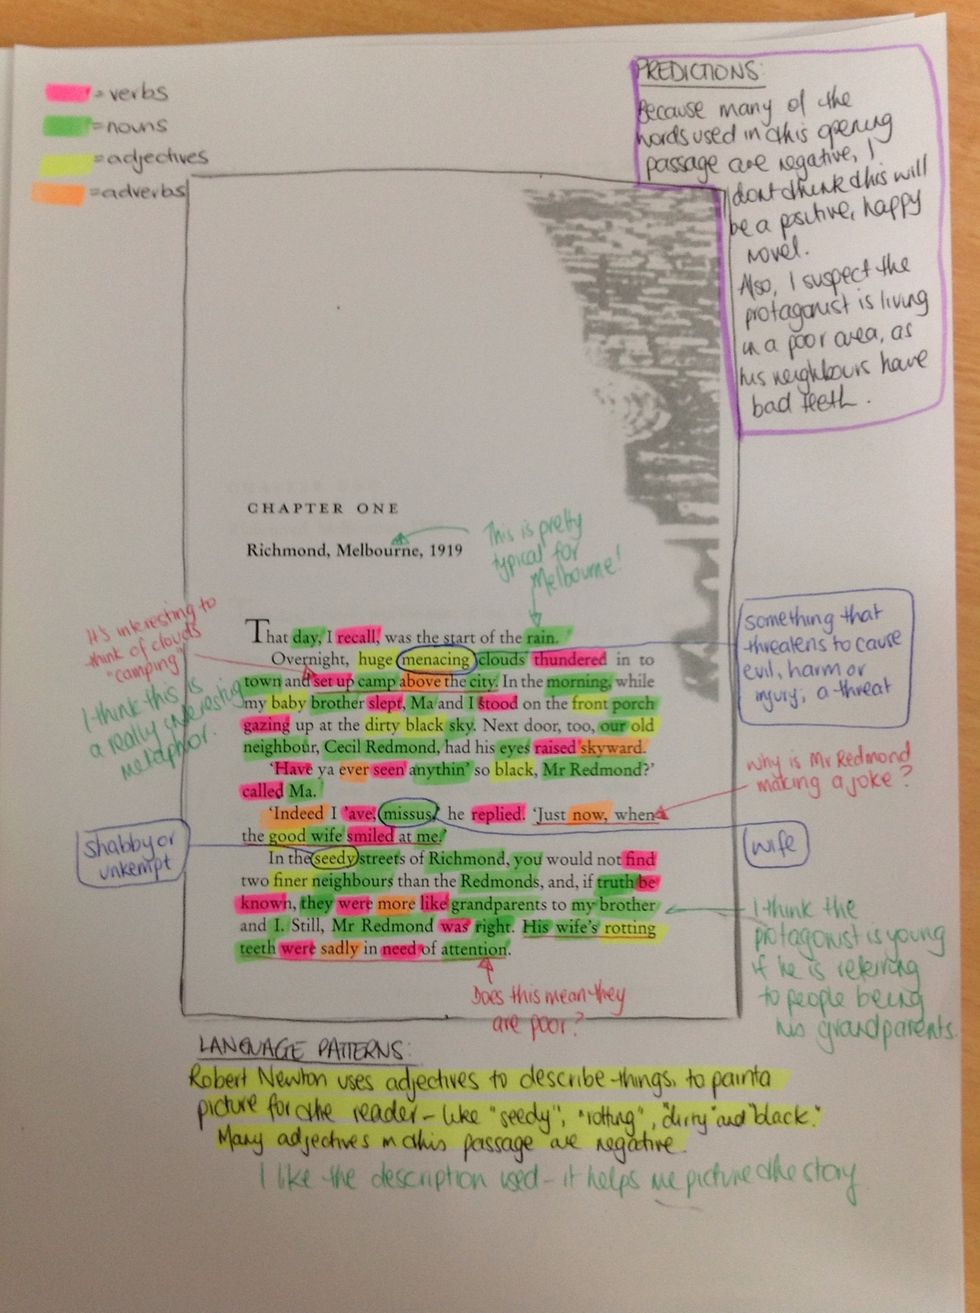 = verbs
= nouns
= adjectives
= adverbs
PREDICTIONS:
Because many of the
words used in this opening
passage are negative, I
dont think this will
be a positive, happy
novel.
Also, I suspect the
protagonist is living
in a poor area, as
his neighbours have
bad teeth.
CHAPTER ONE
Richmond, Melbourne, 1919
This is pretty
typical for
Melbourne!
It's interesting to
think of clouds
"camping"
I think this is
a really interesting
metaphor.
That day, I recall, was the start of the rain.
Overnight, huge menacing clouds thundered in to
town and set up camp above the city. In the morning, while
my baby brother slept, Ma and I stood on the front porch
gazing up at the dirty black sky. Next door, too, our old
neighbour, Cecil Redmond, had his eyes raised skyward.
'Have ya ever seen anythin' so black, Mr Redmond?'
called Ma.
'Indeed I 'ave, missus,' he replied. 'Just now, when
the good wife smiled at me.'
In the seedy streets of Richmond, you would not find
two finer neighbours than the Redmonds, and, if truth be
known, they were more like grandparents to my brother
and I. Still, Mr Redmond was right. His wife's rotting
teeth were sadly in need of attention.
something that
threatens to cause
evil, harm or
injury; a threat
Why is Mr Redmond
making a joke?
shabby or
unkempt
wife
I think the
protagonist is young
if he is referring
to people being
his grandparents.
Does this mean they
are poor?
LANGUAGE PATTERNS:
Robert Newton uses adjectives to describe things, to paint a
picture for the reader - like "seedy", "rotting", "dirty" and "black."
Many adjectives in this passage are negative.
I like the description used - it helps me picture the story